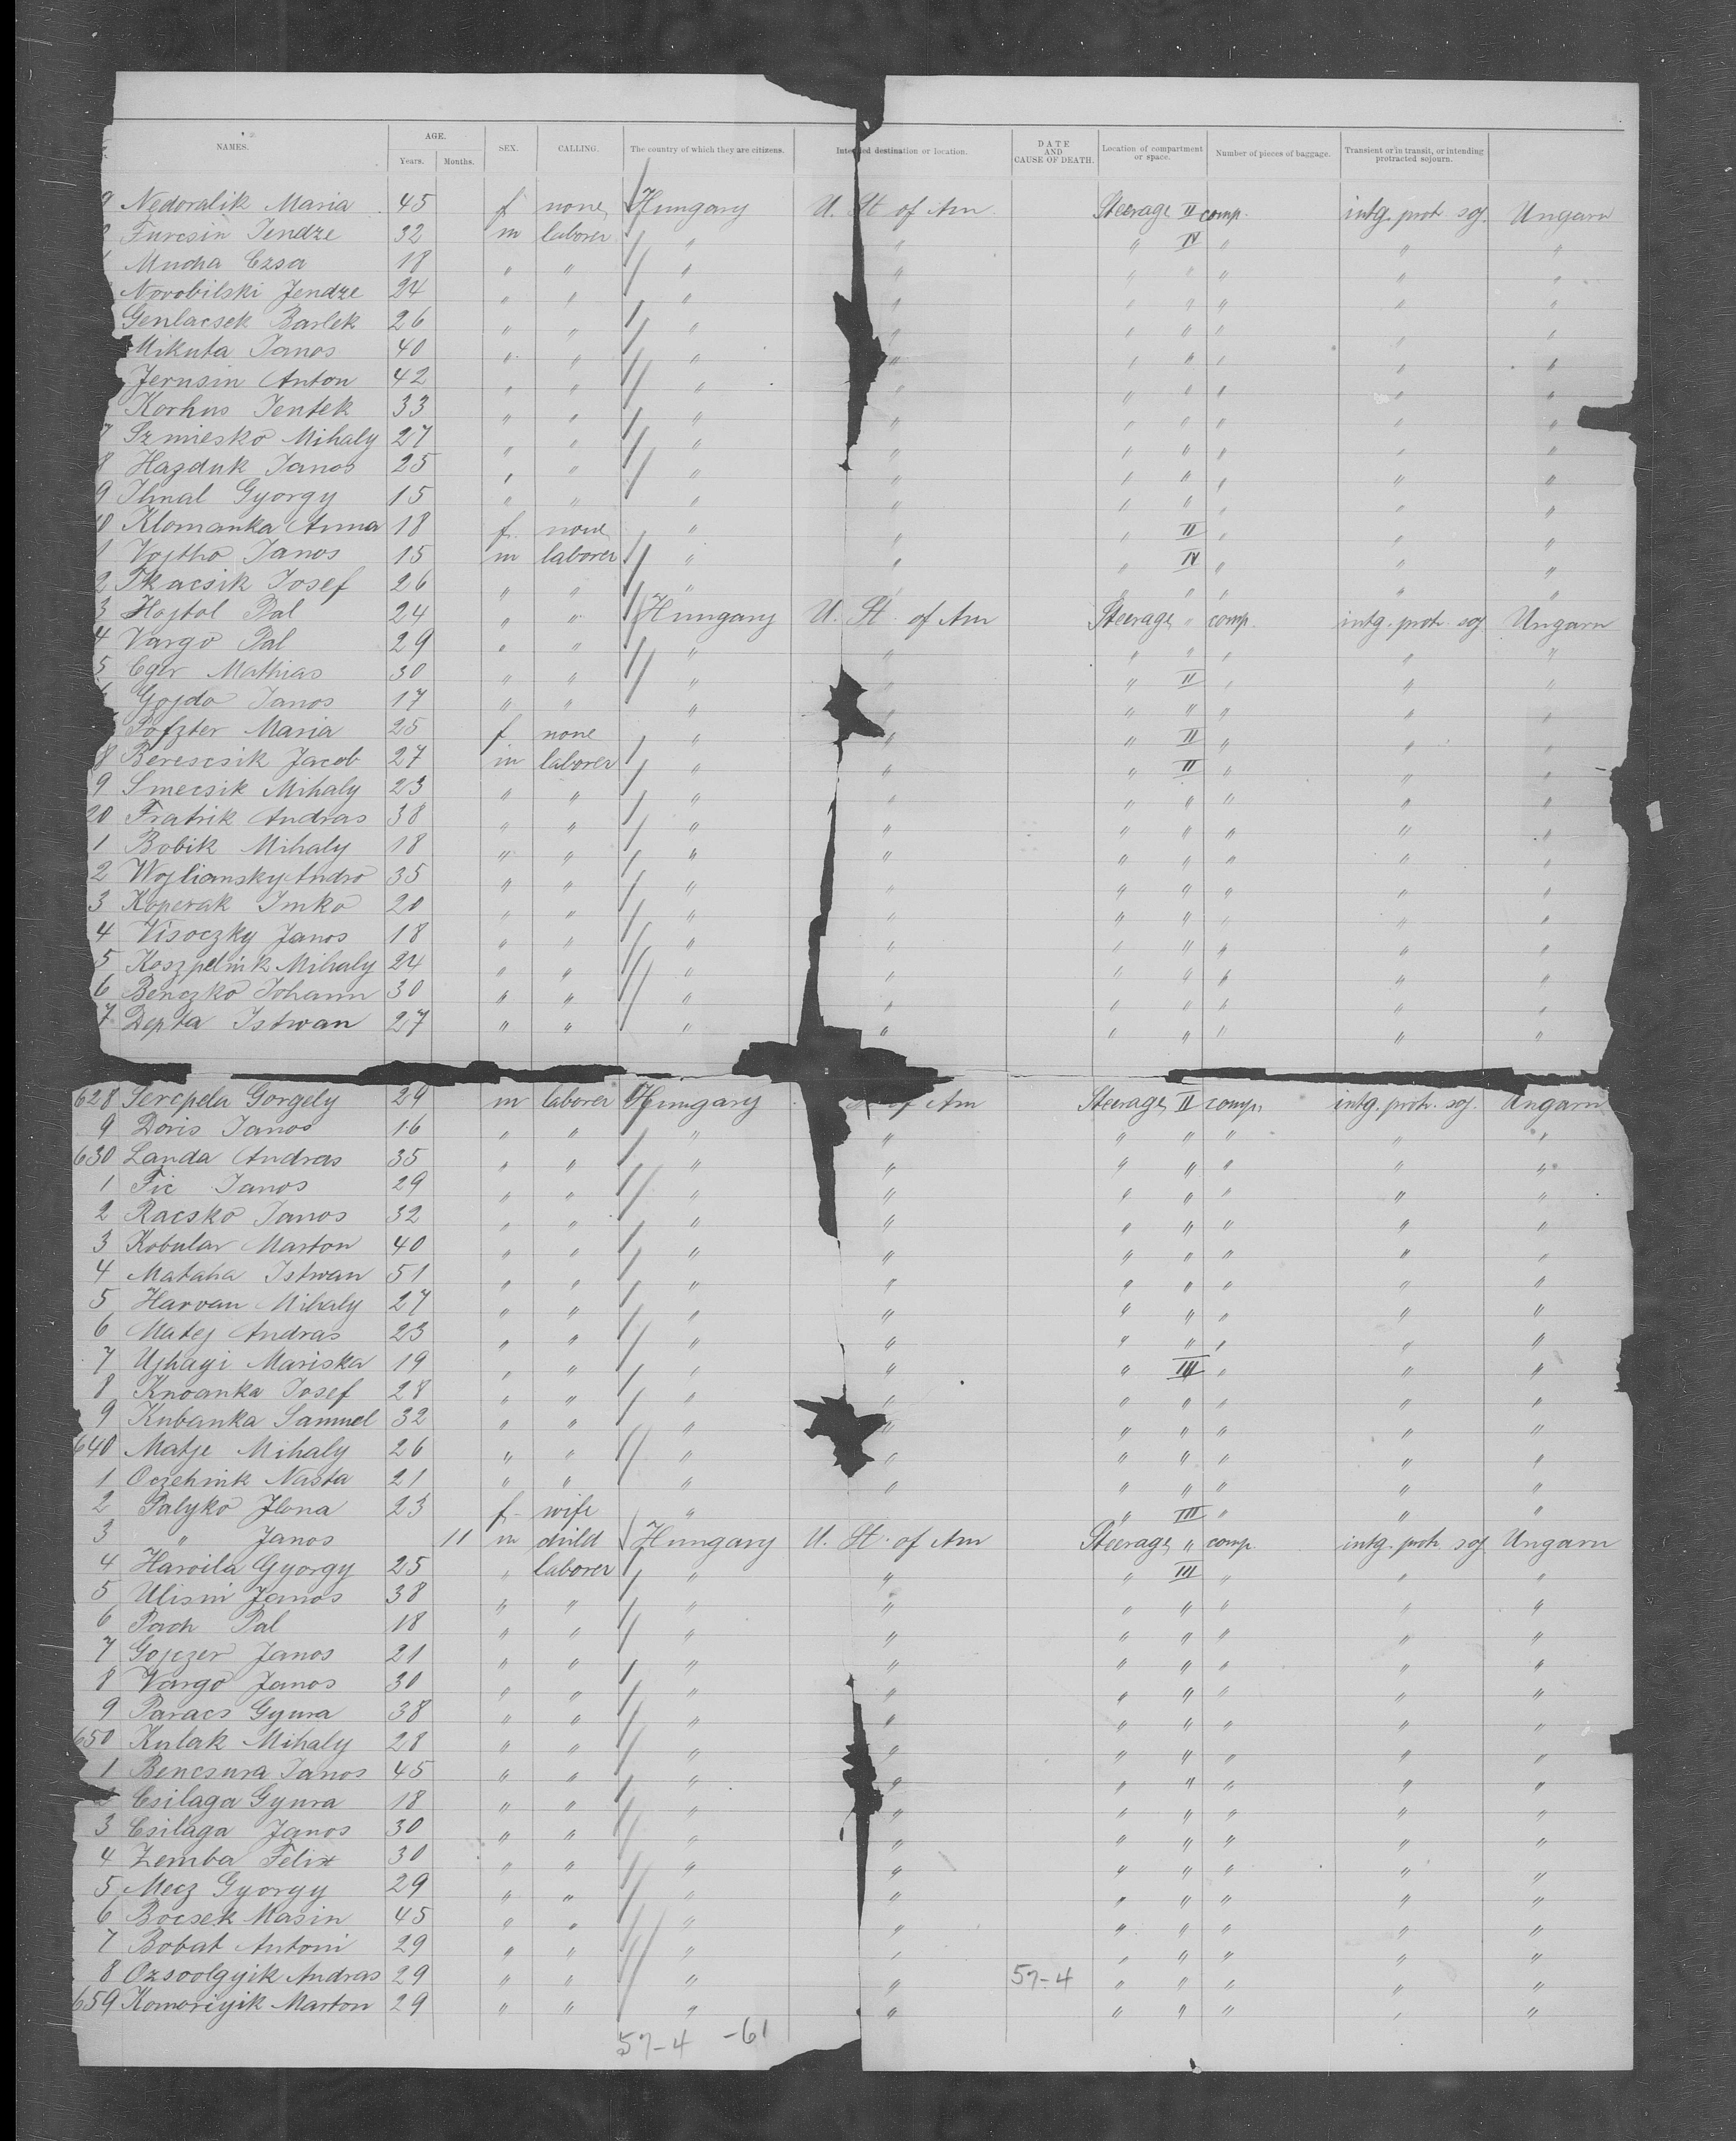 NAMES. AGE. SEX. CALLING. The country of which they are citizens. Intended destination or location. DATE AND CAUSE OF DEATH. Location of compartment or space. Number of pieces of baggage. Transient or in transit, or intending protracted sojourn.
Years. Months.
9 Nedoralik Maria 45 f none Hungary U. St of Am Steerage II comp. intg. protr soj. Ungarn
Furcsin Jendze 32 m laborer " " " IV " " "
Mucha 18 " " " " " " " " "
Novobilski Jendze 24 " " " " " " " " "
Genlacsek Barlek 26 " " " " " " " " "
Mikuta Janos 40 " " " " " " " " "
Jerusin Anton 42 " " " " " " " " "
Korhus Jentek 33 " " " " " " " " "
7 Szmiesko Mihaly 27 " " " " " " " " "
8 Hazduk Janos 25 " " " " " " " " "
9 Ilmal Gyorgy 15 " " " " " " " " "
10 Klomanka Anna 18 f. none " " " II " " "
1 Vojtho Janos 15 m laborer " " " IV " " "
2 Tkacsik Josef 26 " " " " " " " " "
3 Hojtol Pal 24 " " Hungary U. St. of Am Steerage " comp. intg. protr. soj Ungarn
4 Vargo Pal 29 " " " " " " " " "
5 Eger Mathias 30 " " " " " II " " "
Gojdo Janos 17 " " " " " " " " "
Pofzter Maria 25 f none " " " II " " "
8 Berescsik Jacob 27 m laborer " " " II " " "
9 Smecsik Mihaly 23 " " " " " " " " "
20 Fratrik Andras 38 " " " " " " " " "
1 Bobik Mihaly 18 " " " " " " " " "
2 Wojliansky Andro 35 " " " " " " " " "
3 Koperak Imko 20 " " " " " " " " "
4 Visoczky Janos 18 " " " " " " " " "
5 Koszpelnik Mihaly 24 " " " " " " " " "
6 Benczko Johann 30 " " " " " " " " "
7 Depta Istwan 27 " " " " " " " " "
628 Serepela Gorgely 29 m laborer Hungary of Am Steerage II comp. intg. protr. soj. Ungarn
9 Doris Janos 16 " " " " " " " " "
630 Landa Andras 35 " " " " " " " " "
1 Fic Janos 29 " " " " " " " " "
2 Racsko Janos 32 " " " " " " " " "
3 Kobular Marton 40 " " " " " " " " "
4 Mataha Istwan 51 " " " " " " " " "
5 Harvan Mihaly 27 " " " " " " " " "
6 Matej Andras 23 " " " " " " " " "
7 Ujhagi Mariska 19 " " " " " III " " "
8 Knoanka Josef 28 " " " " " " " " "
9 Kubanka Samuel 32 " " " " " " " " "
640 Matje Mihaly 26 " " " " " " " " "
1 Oczehnik Nasta 21 " " " " " " " " "
2 Palyko Ilona 23 f wife " " " III " " "
3 " Janos 11 m child Hungary U. St. of Am Steerage " comp intg. protr soj Ungarn
4 Haroila Gyorgy 25 " laborer " " " III " " "
5 Ulisni Janos 38 " " " " " " " " "
6 Pach Pal 18 " " " " " " " " "
7 Gojczer Janos 21 " " " " " " " " "
8 Vargo Janos 30 " " " " " " " " "
9 Paracs Gyura 38 " " " " " " " " "
650 Kulak Mihaly 28 " " " " " " " " "
1 Bencsura Janos 45 " " " " " " " " "
2 Csilaga Gyura 18 " " " " " " " " "
3 Csilaga Janos 30 " " " " " " " " "
4 Zemba Felix 30 " " " " " " " " "
5 Mecz Gyorgy 29 " " " " " " " " "
6 Bocsek Masin 45 " " " " " " " " "
7 Bobat Antoni 29 " " " " " " " " "
8 Ozsvolgyik Andras 29 " " " " 57-4 " " " " "
659 Komoriyik Marton 29 " " " " " " " " "
57-4 -61